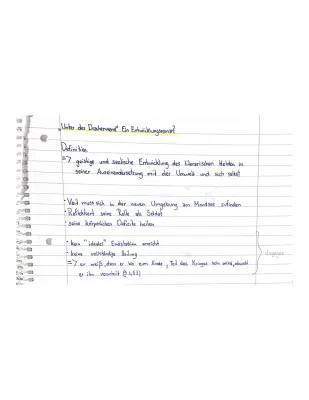 "Unter der Drachenwand" Ein Entwicklungsroman?
Definition
=> geistige und seelische Entwicklung des literarischen Helden in
seiner Auseinandersetzung mit der Umwelt und sich selbst
· Veit muss sich in der neuen Umgebung am Mondsee zufinden
· Reflektiert seine Rolle als Soldat
· seine körperlichen Defizite heilen
· kein "ideales" Endstadium erreicht
· keine vollständige Heilung
=> er weiß, dass er bis zum Ende, Teil des Krieges sein wird, obwohl
er ihn verurteilt
dagegen